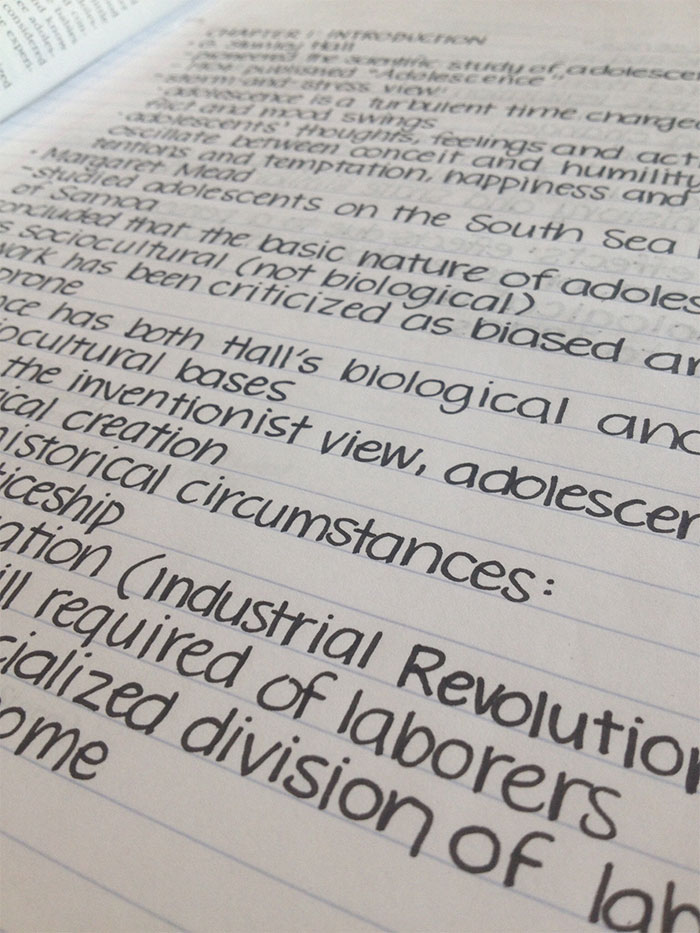 CHAPTER 1: INTRODUCTION
· G. Stanley Hall
- pioneered the scientific study of adolescen
- 1904 published "Adolescence",
- storm-and-stress view:
· adolescence is a turbulent time charged
flict and mood swings
· adolescents' thoughts, feelings and act
oscillate between conceit and humility
tentions and temptation, happiness and
· Margaret Mead
- studied adolescents on the South Sea
of Samoa
oncluded that the basic nature of adoles
s sociocultural (not biological)
work has been criticized as biased an
prone
nce has both Hall's biological and
iocultural bases
the inventionist view, adolescen
ical creation
historical circumstances:
ticeship
ation (Industrial Revolution
ill required of laborers
cialized division of lab
ome